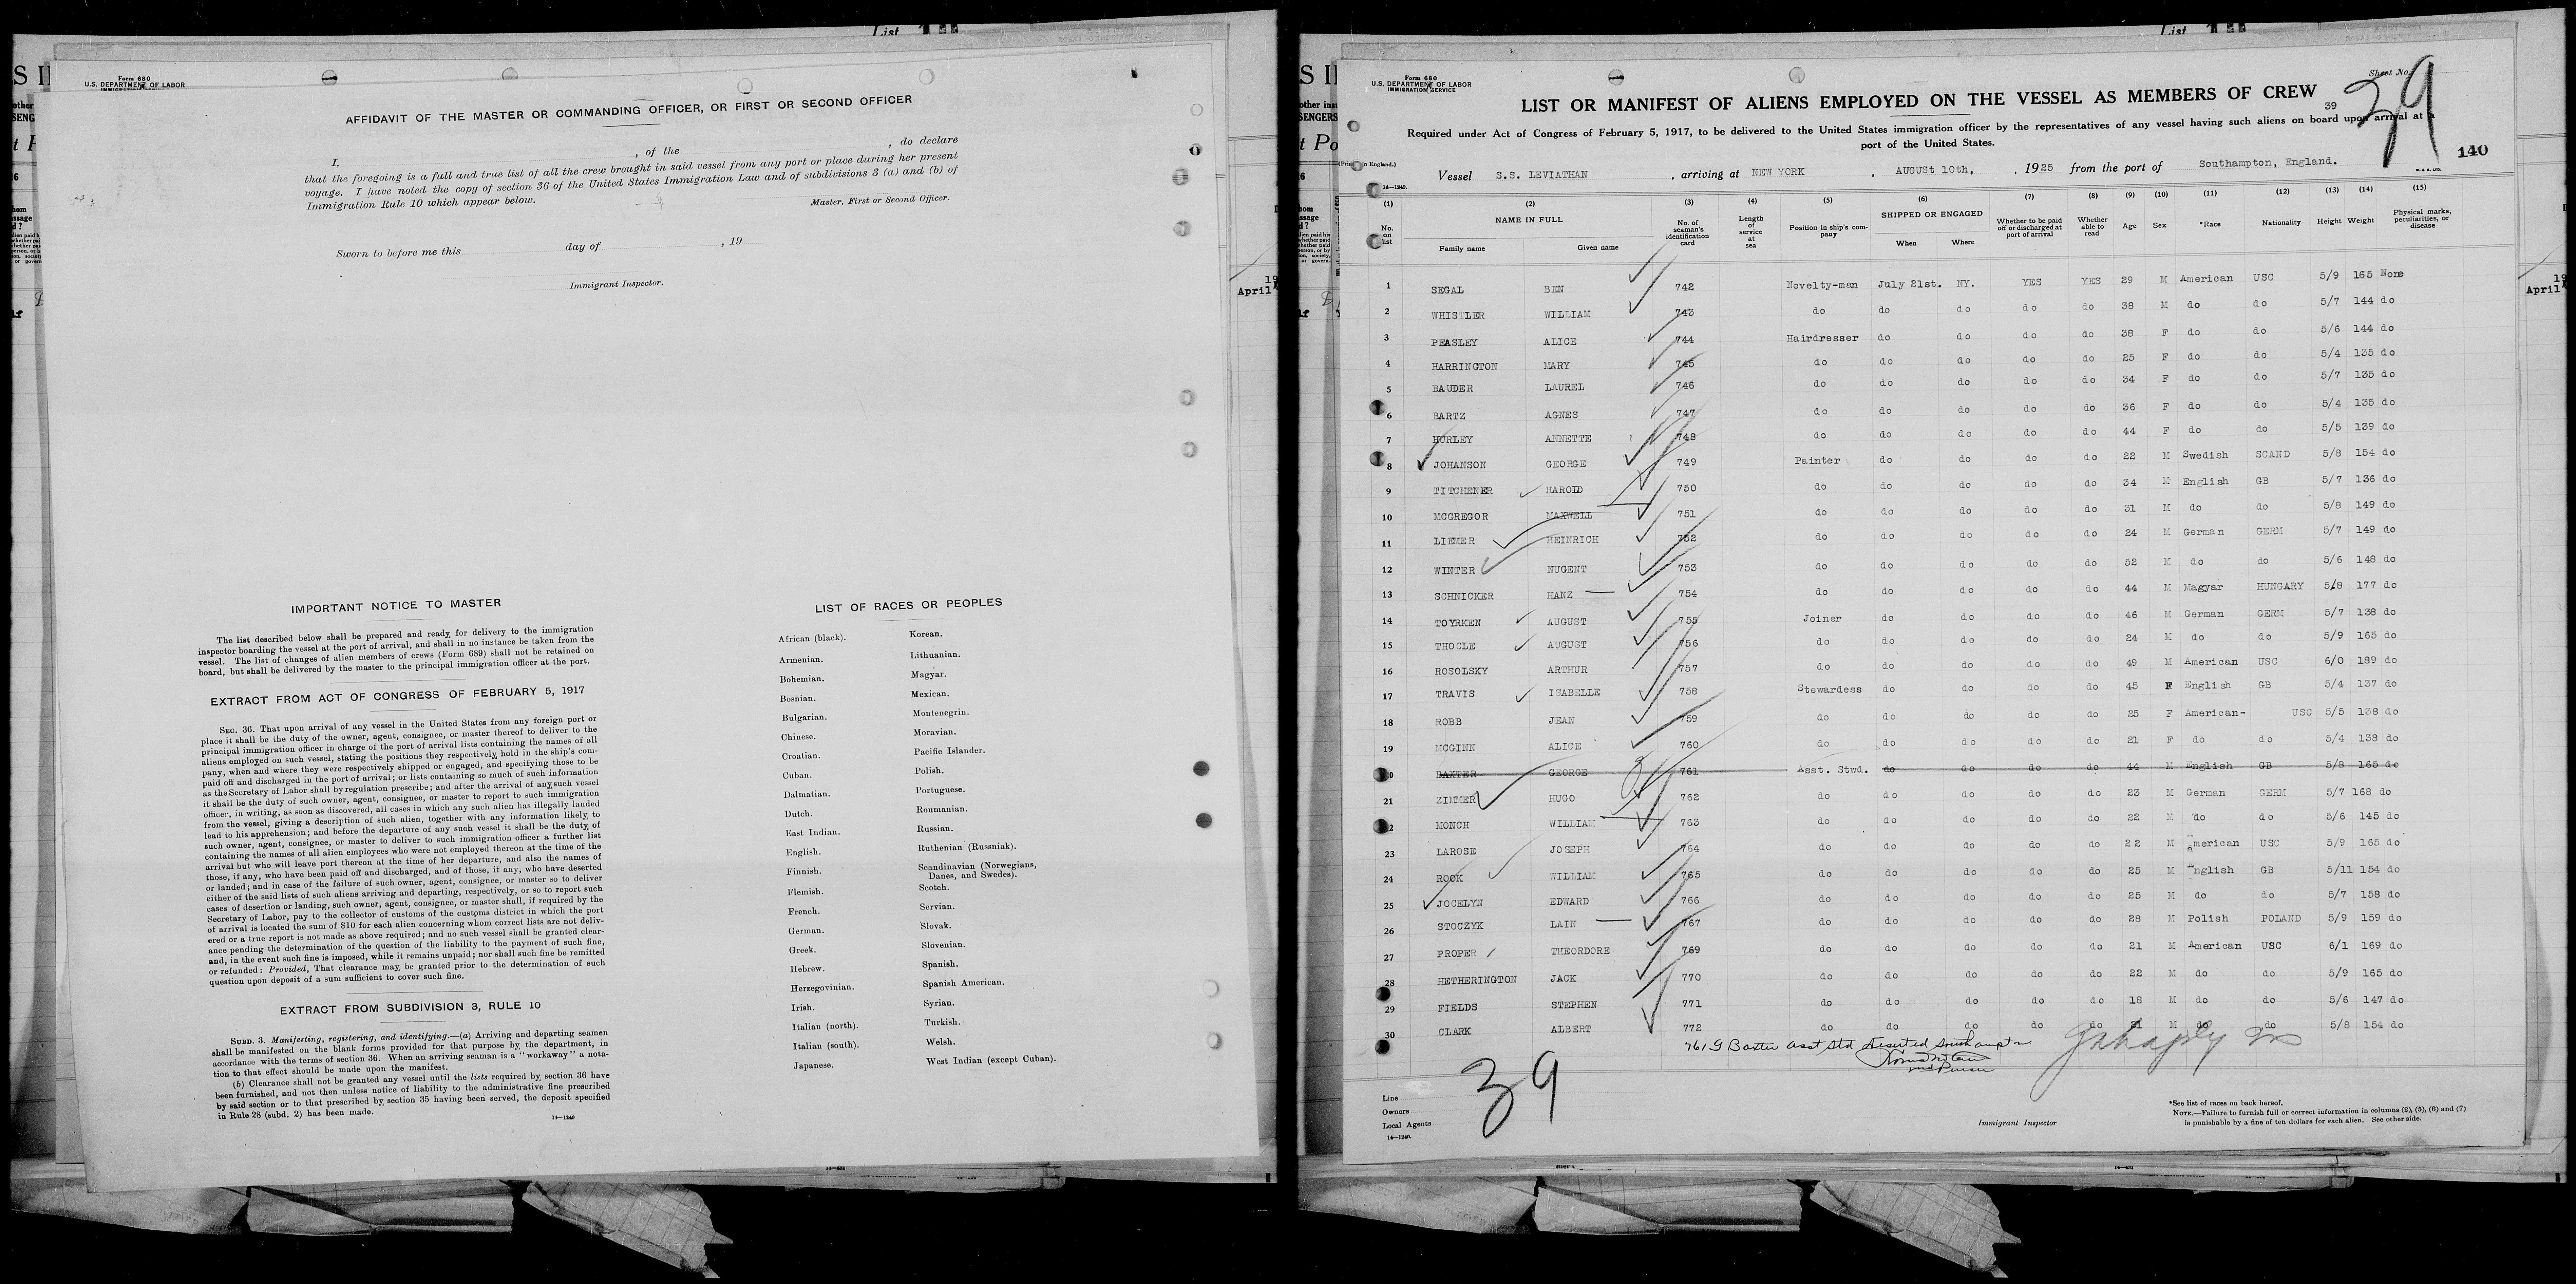 List
Form 680
U.S. DEPARTMENT OF LABOR
AFFIDAVIT OF THE MASTER OR COMMANDING OFFICER, OR FIRST OR SECOND OFFICER
I, , of the , do declare
that the foregoing is a full and true list of all the crew brought in said vessel from any port or place during her present
voyage. I have noted the copy of section 36 of the United States Immigration Law and of subdivisions 3 (a) and (b) of
Immigration Rule 10 which appear below.
Master, First or Second Officer.
Sworn to before me this day of , 19
Immigrant Inspector.
IMPORTANT NOTICE TO MASTER
The list described below shall be prepared and ready for delivery to the immigration
inspector boarding the vessel at the port of arrival, and shall in no instance be taken from the
vessel. The list of changes of alien members of crews (Form 689) shall not be retained on
board, but shall be delivered by the master to the principal immigration officer at the port.
EXTRACT FROM ACT OF CONGRESS OF FEBRUARY 5, 1917
SEC. 36. That upon arrival of any vessel in the United States from any foreign port or
place it shall be the duty of the owner, agent, consignee, or master thereof to deliver to the
principal immigration officer in charge of the port of arrival lists containing the names of all
aliens employed on such vessel, stating the positions they respectively hold in the ship's com-
pany, when and where they were respectively shipped or engaged, and specifying those to be
paid off and discharged in the port of arrival; or lists containing so much of such information
as the Secretary of Labor shall by regulation prescribe; and after the arrival of any such vessel
it shall be the duty of such owner, agent, consignee, or master to report to such immigration
officer, in writing, as soon as discovered, all cases in which any such alien has illegally landed
from the vessel, giving a description of such alien, together with any information likely to
lead to his apprehension; and before the departure of any such vessel it shall be the duty of
such owner, agent, consignee, or master to deliver to such immigration officer a further list
containing the names of all alien employees who were not employed thereon at the time of the
arrival but who will leave port thereon at the time of her departure, and also the names of
those, if any, who have been paid off and discharged, and of those, if any, who have deserted
or landed; and in case of the failure of such owner, agent, consignee, or master so to deliver
either of the said lists of such aliens arriving and departing, respectively, or so to report such
cases of desertion or landing, such owner, agent, consignee, or master shall, if required by the
Secretary of Labor, pay to the collector of customs of the customs district in which the port
of arrival is located the sum of $10 for each alien concerning whom correct lists are not deliv-
ered or a true report is not made as above required; and no such vessel shall be granted clear-
ance pending the determination of the question of the liability to the payment of such fine,
and, in the event such fine is imposed, while it remains unpaid; nor shall such fine be remitted
or refunded: Provided, That clearance may be granted prior to the determination of such
question upon deposit of a sum sufficient to cover such fine.
EXTRACT FROM SUBDIVISION 3, RULE 10
SUBD. 3. Manifesting, registering, and identifying.—(a) Arriving and departing seamen
shall be manifested on the blank forms provided for that purpose by the department, in
accordance with the terms of section 36. When an arriving seaman is a "workaway" a nota-
tion to that effect should be made upon the manifest.
(b) Clearance shall not be granted any vessel until the lists required by section 36 have
been furnished, and not then unless notice of liability to the administrative fine prescribed
by said section or to that prescribed by section 35 having been served, the deposit specified
in Rule 28 (subd. 2) has been made.
14—1240
LIST OF RACES OR PEOPLES
African (black).
Armenian.
Bohemian.
Bosnian.
Bulgarian.
Chinese.
Croatian.
Cuban.
Dalmatian.
Dutch.
East Indian.
English.
Finnish.
Flemish.
French.
German.
Greek.
Hebrew.
Herzegovinian.
Irish.
Italian (north).
Italian (south).
Japanese.
Korean.
Lithuanian.
Magyar.
Mexican.
Montenegrin.
Moravian.
Pacific Islander.
Polish.
Portuguese.
Roumanian.
Russian.
Ruthenian (Russniak).
Scandinavian (Norwegians,
Danes, and Swedes).
Scotch.
Servian.
Slovak.
Slovenian.
Spanish.
Spanish American.
Syrian.
Turkish.
Welsh.
West Indian (except Cuban).
April
List
Form 680
U.S. DEPARTMENT OF LABOR
IMMIGRATION SERVICE
Sheet No.
39
LIST OR MANIFEST OF ALIENS EMPLOYED ON THE VESSEL AS MEMBERS OF CREW
39
Required under Act of Congress of February 5, 1917, to be delivered to the United States immigration officer by the representatives of any vessel having such aliens on board upon arrival at a
port of the United States.
140
Vessel S.S. LEVIATHAN , arriving at NEW YORK , AUGUSt 10th, , 1925 from the port of Southampton, England.
14—1240.
(1) (2) (3) (4) (5) (6) (7) (8) (9) (10) (11) (12) (13) (14) (15)
No. on list NAME IN FULL Family name Given name No. of seaman's identification card Length of service at sea Position in ship's com-pany SHIPPED OR ENGAGED When Where Whether to be paid off or discharged at port of arrival Whether able to read Age Sex *Race Nationality Height Weight Physical marks, peculiarities, or disease
1 SEGAL BEN 742 Novelty-man July 21st. NY. YES YES 29 M American USC 5/9 165 None
2 WHISTLER WILLIAM 743 do do do do do 38 M do do 5/7 144 do
3 PEASLEY ALICE 744 Hairdresser do do do do 38 F do do 5/6 144 do
4 HARRINGTON MARY 745 do do do do do 25 F do do 5/4 135 do
5 BAUDER LAUREL 746 do do do do do 34 F do do 5/7 135 do
6 BARTZ AGNES 747 do do do do do 36 F do do 5/4 135 do
7 HURLEY ANNETTE 748 do do do do do 44 F do do 5/5 139 do
8 JOHANSON GEORGE 749 Painter do do do do 22 M Swedish SCAND 5/8 154 do
9 TITCHENER HAROLD 750 do do do do do 34 M English GB 5/7 136 do
10 MCGREGOR MAXWELL 751 do do do do do 31 M do do 5/8 149 do
11 LIEMER HEINRICH 752 do do do do do 24 M German GERM 5/7 149 do
12 WINTER NUGENT 753 do do do do do 52 M do do 5/6 148 do
13 SCHNICKER HANZ 754 do do do do do 44 M Magyar HUNGARY 5/8 177 do
14 TOYRKEN AUGUST 755 Joiner do do do do 46 M German GERM 5/7 138 do
15 THOCLE AUGUST 756 do do do do do 24 M do do 5/9 165 do
16 ROSOLSKY ARTHUR 757 do do do do do 49 M American USC 6/0 189 do
17 TRAVIS ISABELLE 758 Stewardess do do do do 45 F English GB 5/4 137 do
18 ROBB JEAN 759 do do do do do 25 F American- USC 5/5 138 do
19 MCGINN ALICE 760 do do do do do 21 F do do 5/4 138 do
20 BAXTER GEORGE 761 Asst. Stwd. do do do do 44 M English GB 5/8 165 do
21 ZIMMER HUGO 762 do do do do do 23 M German GERM 5/7 168 do
22 MONCH WILLIAM 763 do do do do do 22 M do do 5/6 145 do
23 LAROSE JOSEPH 764 do do do do do 22 M American USC 5/9 165 do
24 ROOK WILLIAM 765 do do do do do 25 M English GB 5/11 154 do
25 JOCELYN EDWARD 766 do do do do do 25 M do do 5/7 158 do
26 STOCZYK LAIN 767 do do do do do 28 M Polish POLAND 5/9 159 do
27 PROPER THEORDORE 769 do do do do do 21 M American USC 6/1 169 do
28 HETHERINGTON JACK 770 do do do do do 22 M do do 5/9 165 do
29 FIELDS STEPHEN 771 do do do do do 18 M do do 5/6 147 do
30 CLARK ALBERT 772 do do do do do 21 M do do 5/8 154 do
761 G Baxter asst Std deserted Southampton
39
Line
Owners
Local Agents
14—1240.
Immigrant Inspector
*See list of races on back hereof.
NOTE.—Failure to furnish full or correct information in columns (2), (5), (6) and (7)
is punishable by a fine of ten dollars for each alien. See other side.
April